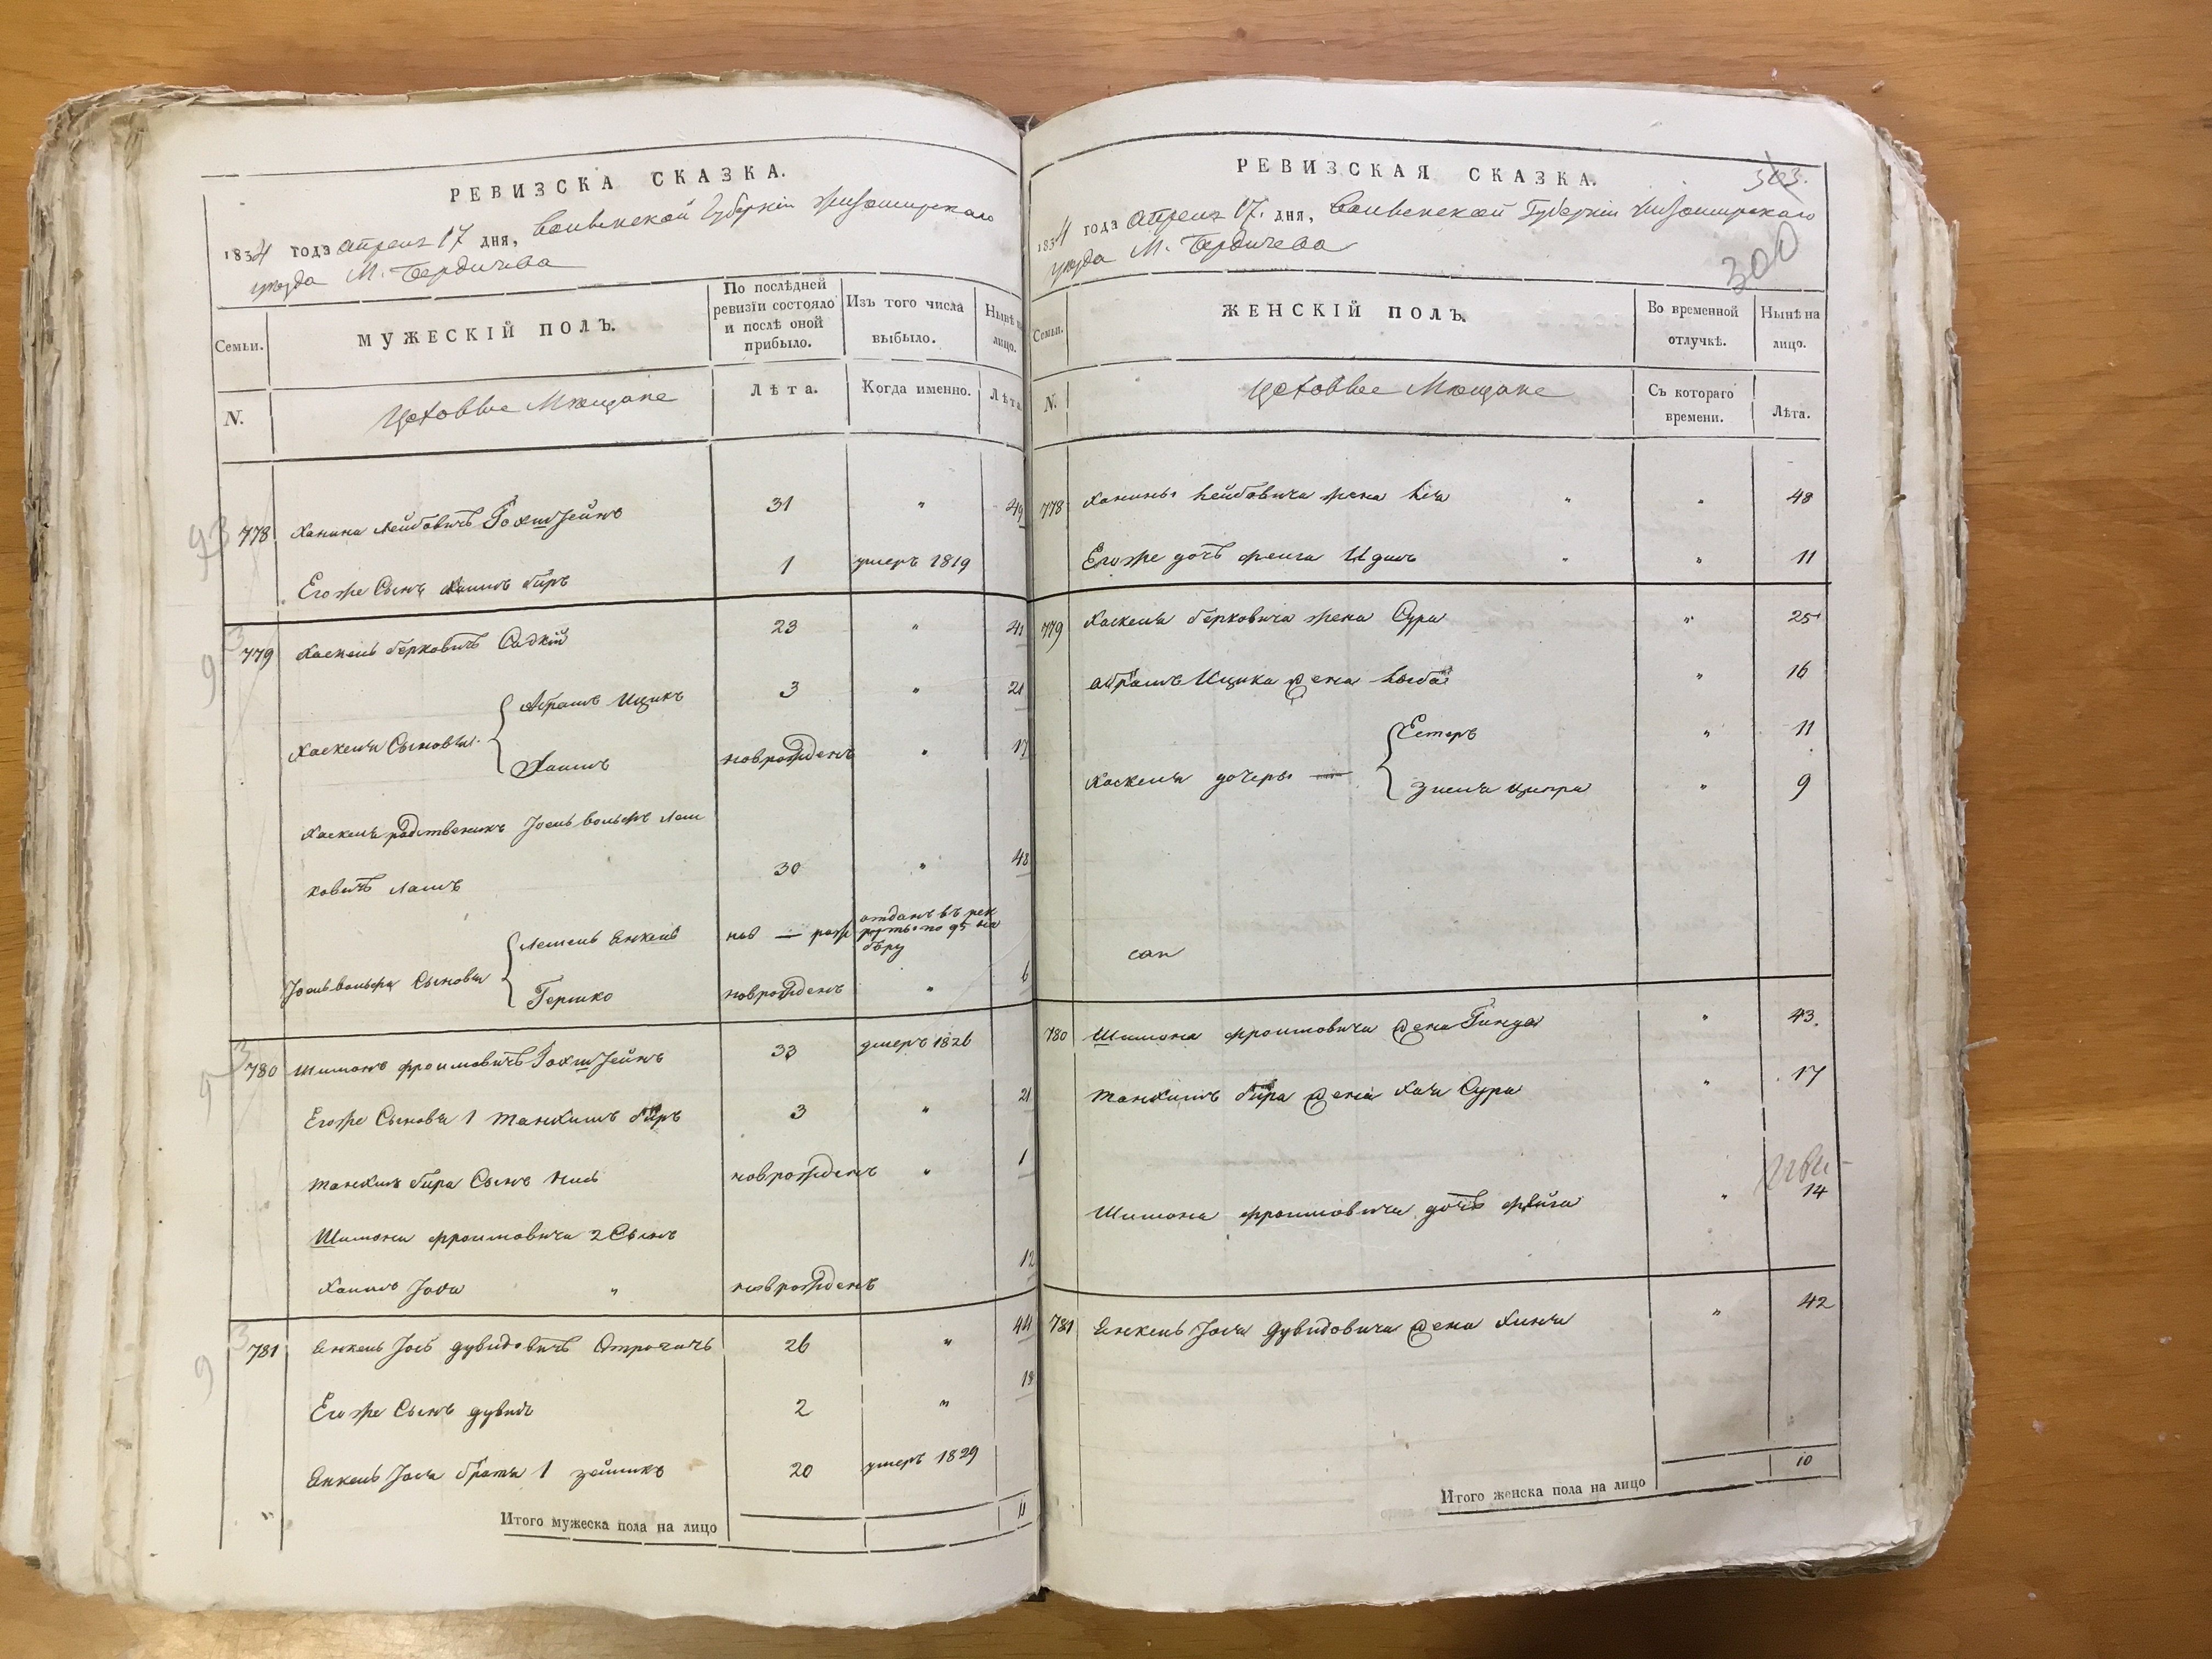 РЕВИЗСКА СКАЗКА.
1834 года апреля 17 дня, Волынской Губернiи Житомирскаго
уезда М. Бердичева
Семьи.
МУЖЕСКІЙ ПОЛЪ.
По послѣдней
ревизіи состояло
и послѣ оной
прибыло.
Изъ того числа
выбыло.
Нынѣ на
лицо.
N.
Цеховые Мещане
Лѣта.
Когда именно.
Лѣта
778 Ханина Лейбовичъ Гохштейнъ 31 " 49
Егоже Сынъ Хаимъ беръ 1 умеръ 1819
779 Хаскель берковичъ 23 " 41
Хаскеля Сыновья
Абрамъ Ицикъ 3 " 21
Хаимъ новрожденъ " 17
Хаскеля родственикъ Іось вольфъ Лем
ковичъ 30 " 48
Іось вольфа Сыновья
Енкель нов — рож отданъ въ рек
руты по 95 на
бору
Гершко новрожденъ " 6
780 Шимонъ фроимовичъ Гохштейнъ 33 умеръ 1826
Егоже Сыновья 1 Танхимъ беръ 3 " 21
Танхимъ бера Сынъ новрожденъ " 1
Шимона фроимовича 2 Сынъ
Хаимъ " новрожденъ 12
781 Енкель Іось дувидовичъ 26 " 44
Егоже Сынъ дувидъ 2 " 19
Енкель Іося братья 1 зейликъ 20 умеръ 1829
Итого мужеска пола на лицо 11
РЕВИЗСКАЯ СКАЗКА.
300
1834 года апреля 17. дня, Волынской Губернiи Житомирскаго
уезда М. Бердичева
Семьи.
ЖЕНСКІЙ ПОЛЪ.
Во временной
отлучкѣ.
Нынѣ на
лицо.
N.
Цеховые Мещане
Съ котораго
времени.
Лѣта.
778 Ханины Лейбовича жена Лея " " 48
Егоже дочь фейга " " 11
779 Хаскеля берковича жена Сура " 25
Абрамъ Ицика жена " 16
Хаскеля дочеры —
Естеръ " 11
ципра " 9
780 Шимона фроимовича жена Гинда " 43.
Танхимъ бера жена Хая Сура " 17
Шимона фроимовича дочь фейга " 14
781 Енкель Іося Дувидовича жена " 42
Итого женска пола на лицо 10